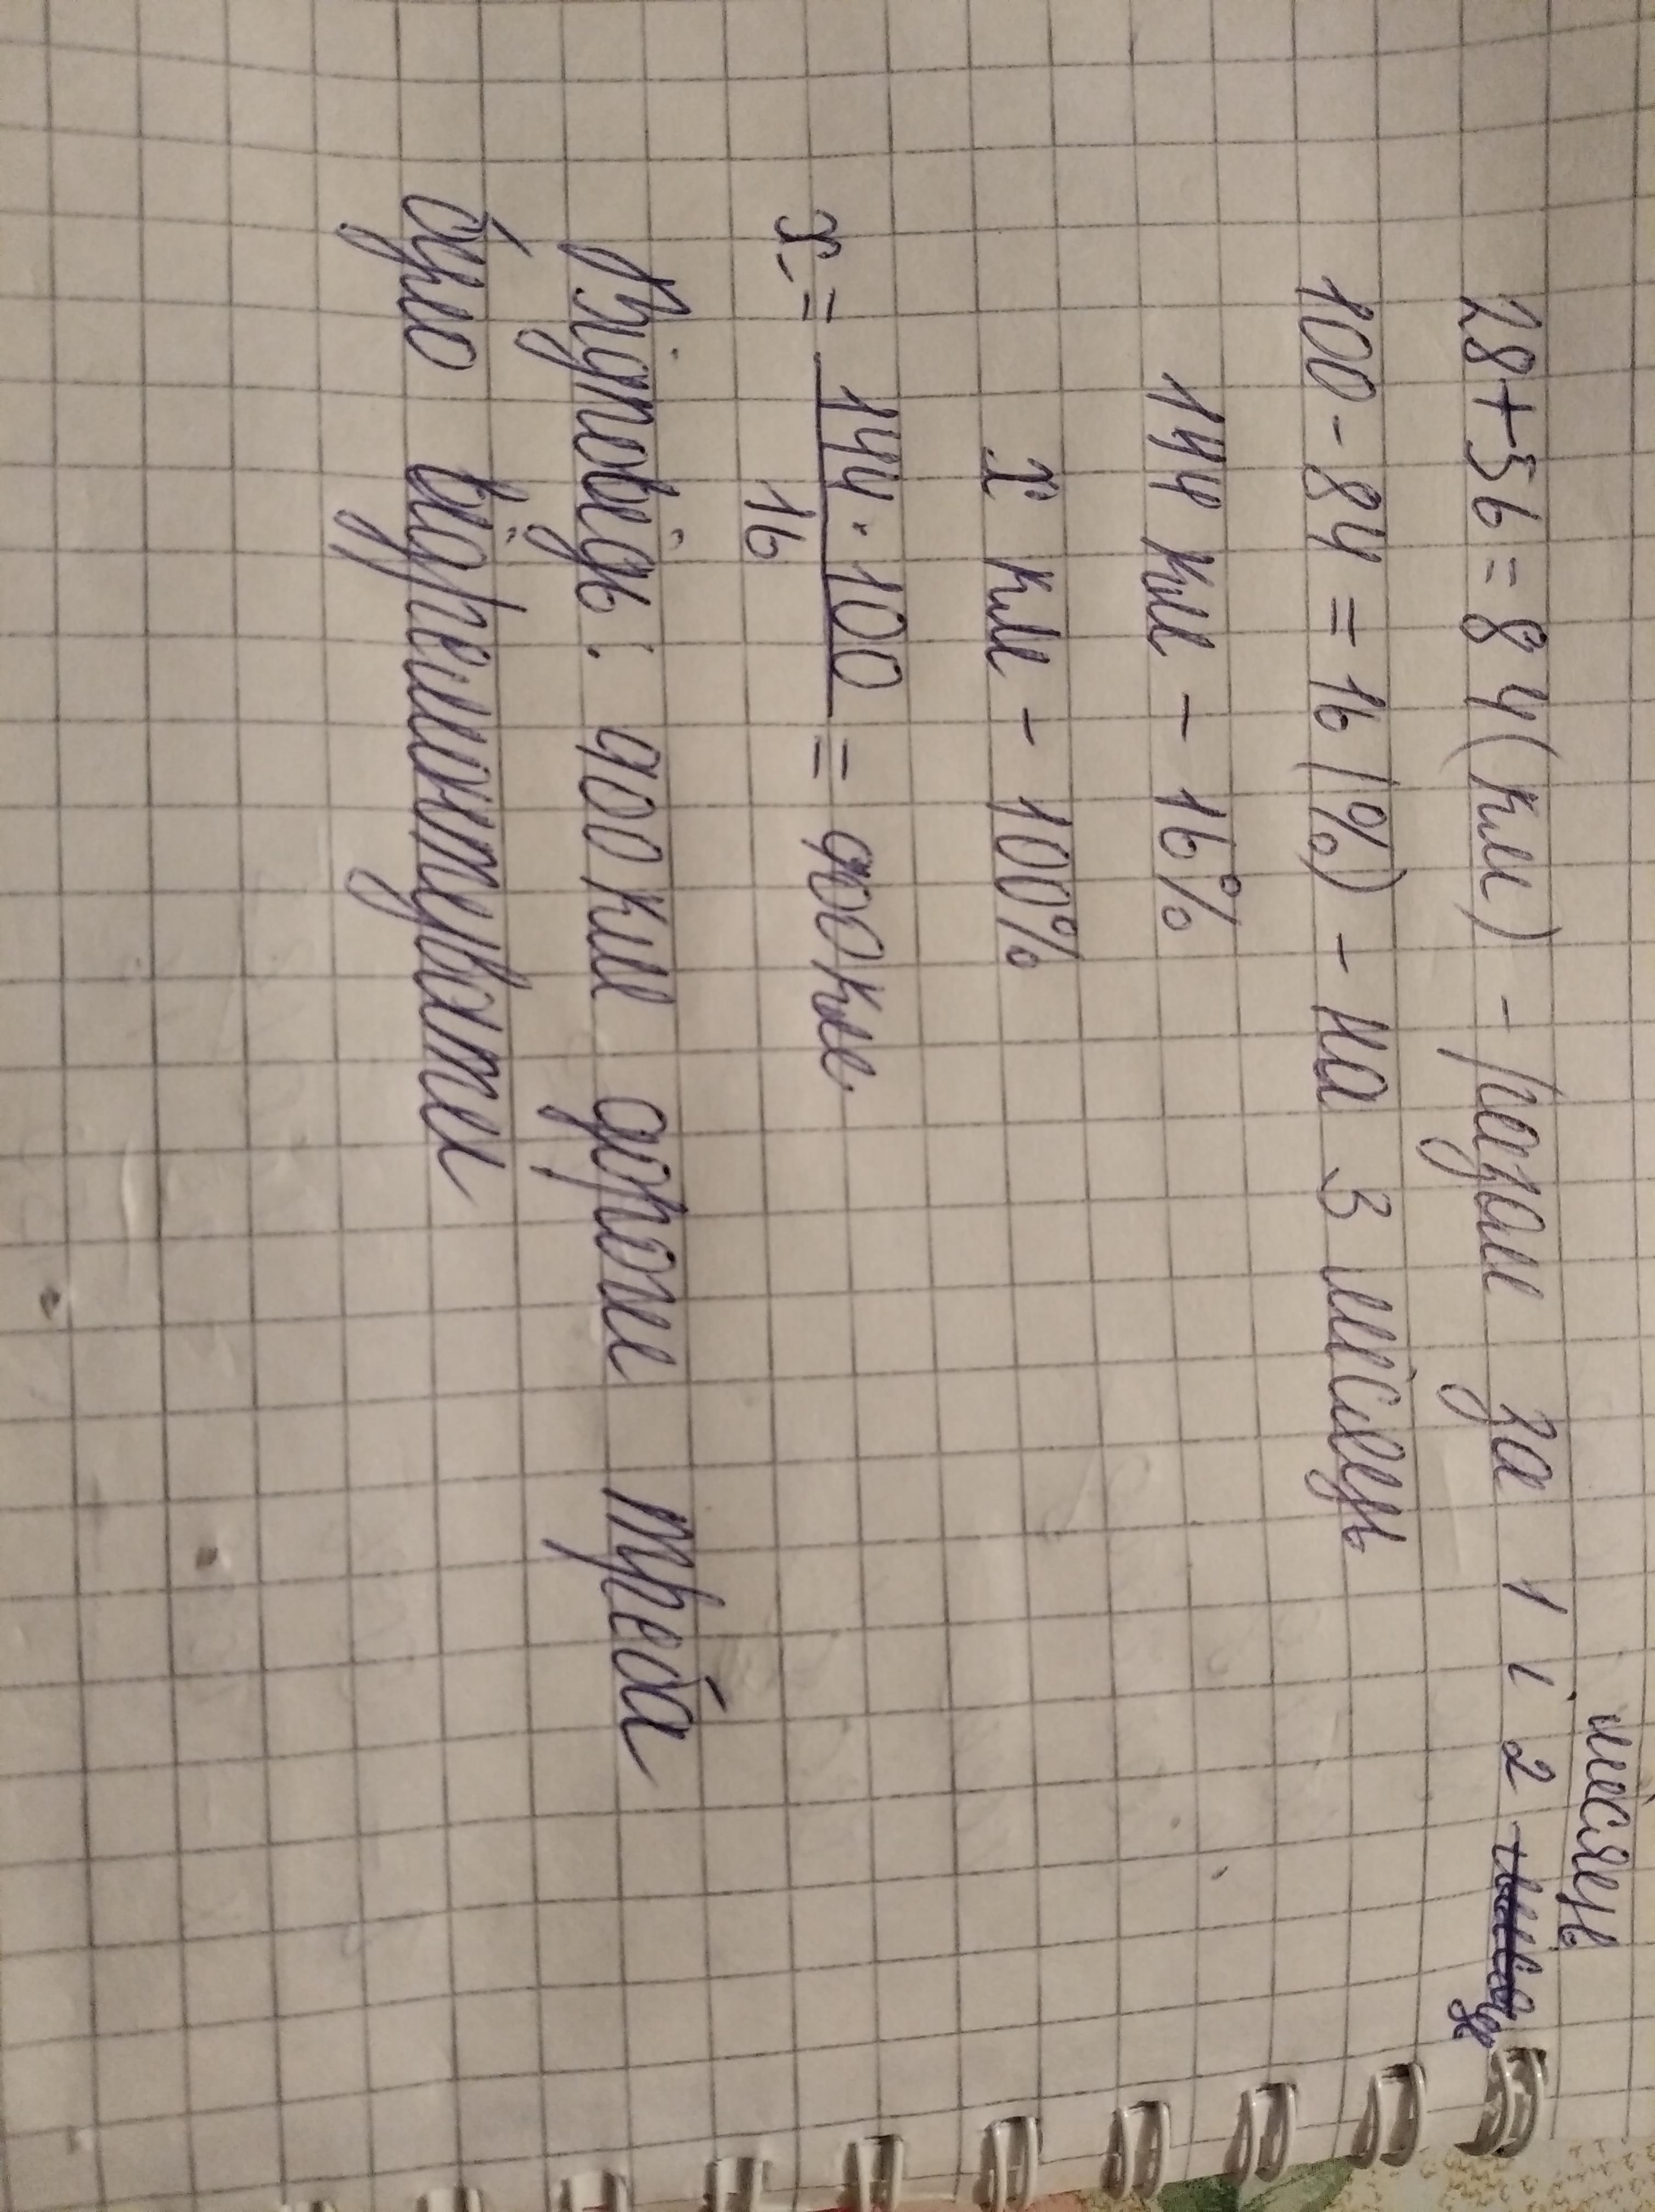 місяць
28+56=84(км) - разом за 1 і 2
100-84=16(%) - на 3 місяць
144 км - 16%
x км - 100%
x = 144·100 / 16 = 900 км
Відповідь: 900 км дороги треба
було відремонтувати